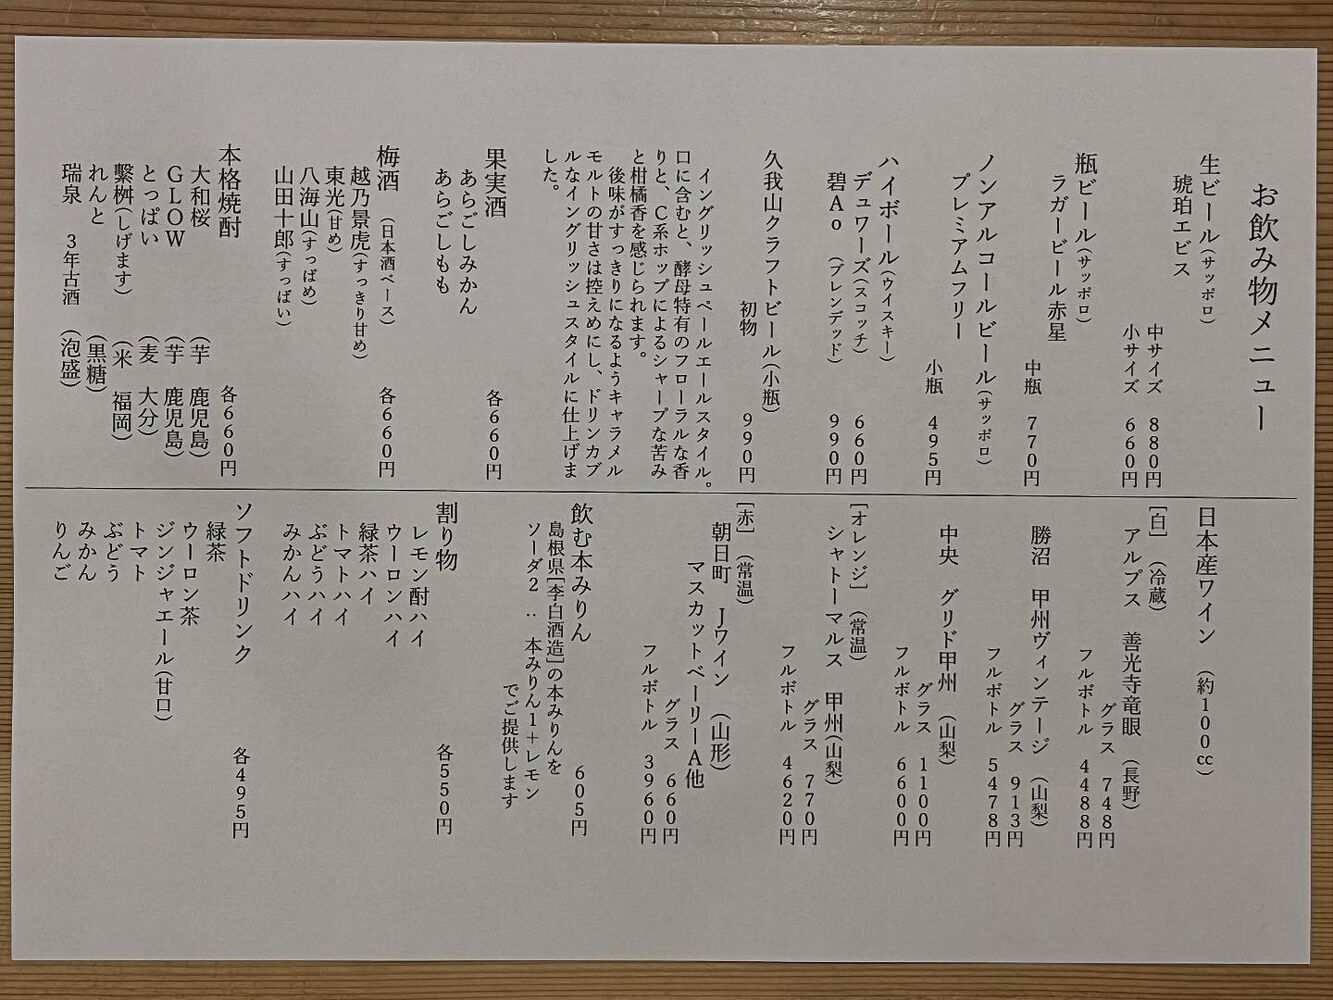 お飲み物メニュー
生ビール(サッポロ)
琥珀エビス
中サイズ 880円
小サイズ 660円
瓶ビール(サッポロ)
ラガービール赤星
中瓶 770円
ノンアルコールビール(サッポロ)
プレミアムフリー
小瓶 495円
ハイボール(ウイスキー)
デュワーズ(スコッチ) 660円
碧Ao (ブレンデッド) 990円
久我山クラフトビール(小瓶)
初物 990円
イングリッシュペールエールスタイル。
口に含むと、酵母特有のフローラルな香
りと、C系ホップによるシャープな苦み
と柑橘香を感じられます。
後味がすっきりになるようキャラメル
モルトの甘さは控えめにし、ドリンカブ
ルなイングリッシュスタイルに仕上げま
した。
果実酒 各660円
あらごしみかん
あらごしもも
梅酒 (日本酒ベース) 各660円
越乃景虎(すっきり甘め)
東光(甘め)
八海山(すっぱめ)
山田十郎(すっぱい)
本格焼酎 各660円
大和桜 (芋 鹿児島)
GLOW (芋 鹿児島)
とっぱい (麦 大分)
繋桝(しげます) (米 福岡)
れんと (黒糖)
瑞泉 3年古酒 (泡盛)
日本産ワイン (約100cc)
[白] (冷蔵)
アルプス 善光寺竜眼 (長野)
グラス 748円
フルボトル 4488円
勝沼 甲州ヴィンテージ (山梨)
グラス 913円
フルボトル 5478円
中央 グリド甲州 (山梨)
グラス 1100円
フルボトル 6600円
[オレンジ] (常温)
シャトーマルス 甲州(山梨)
グラス 770円
フルボトル 4620円
[赤] (常温)
朝日町 Jワイン (山形)
マスカットベーリーA他
グラス 660円
フルボトル 3960円
飲む本みりん 605円
島根県[李白酒造]の本みりんを
ソーダ2 : 本みりん1+レモン
でご提供します
割り物 各550円
レモン酎ハイ
ウーロンハイ
緑茶ハイ
トマトハイ
ぶどうハイ
みかんハイ
ソフトドリンク 各495円
緑茶
ウーロン茶
ジンジャエール(甘口)
トマト
ぶどう
みかん
りんご